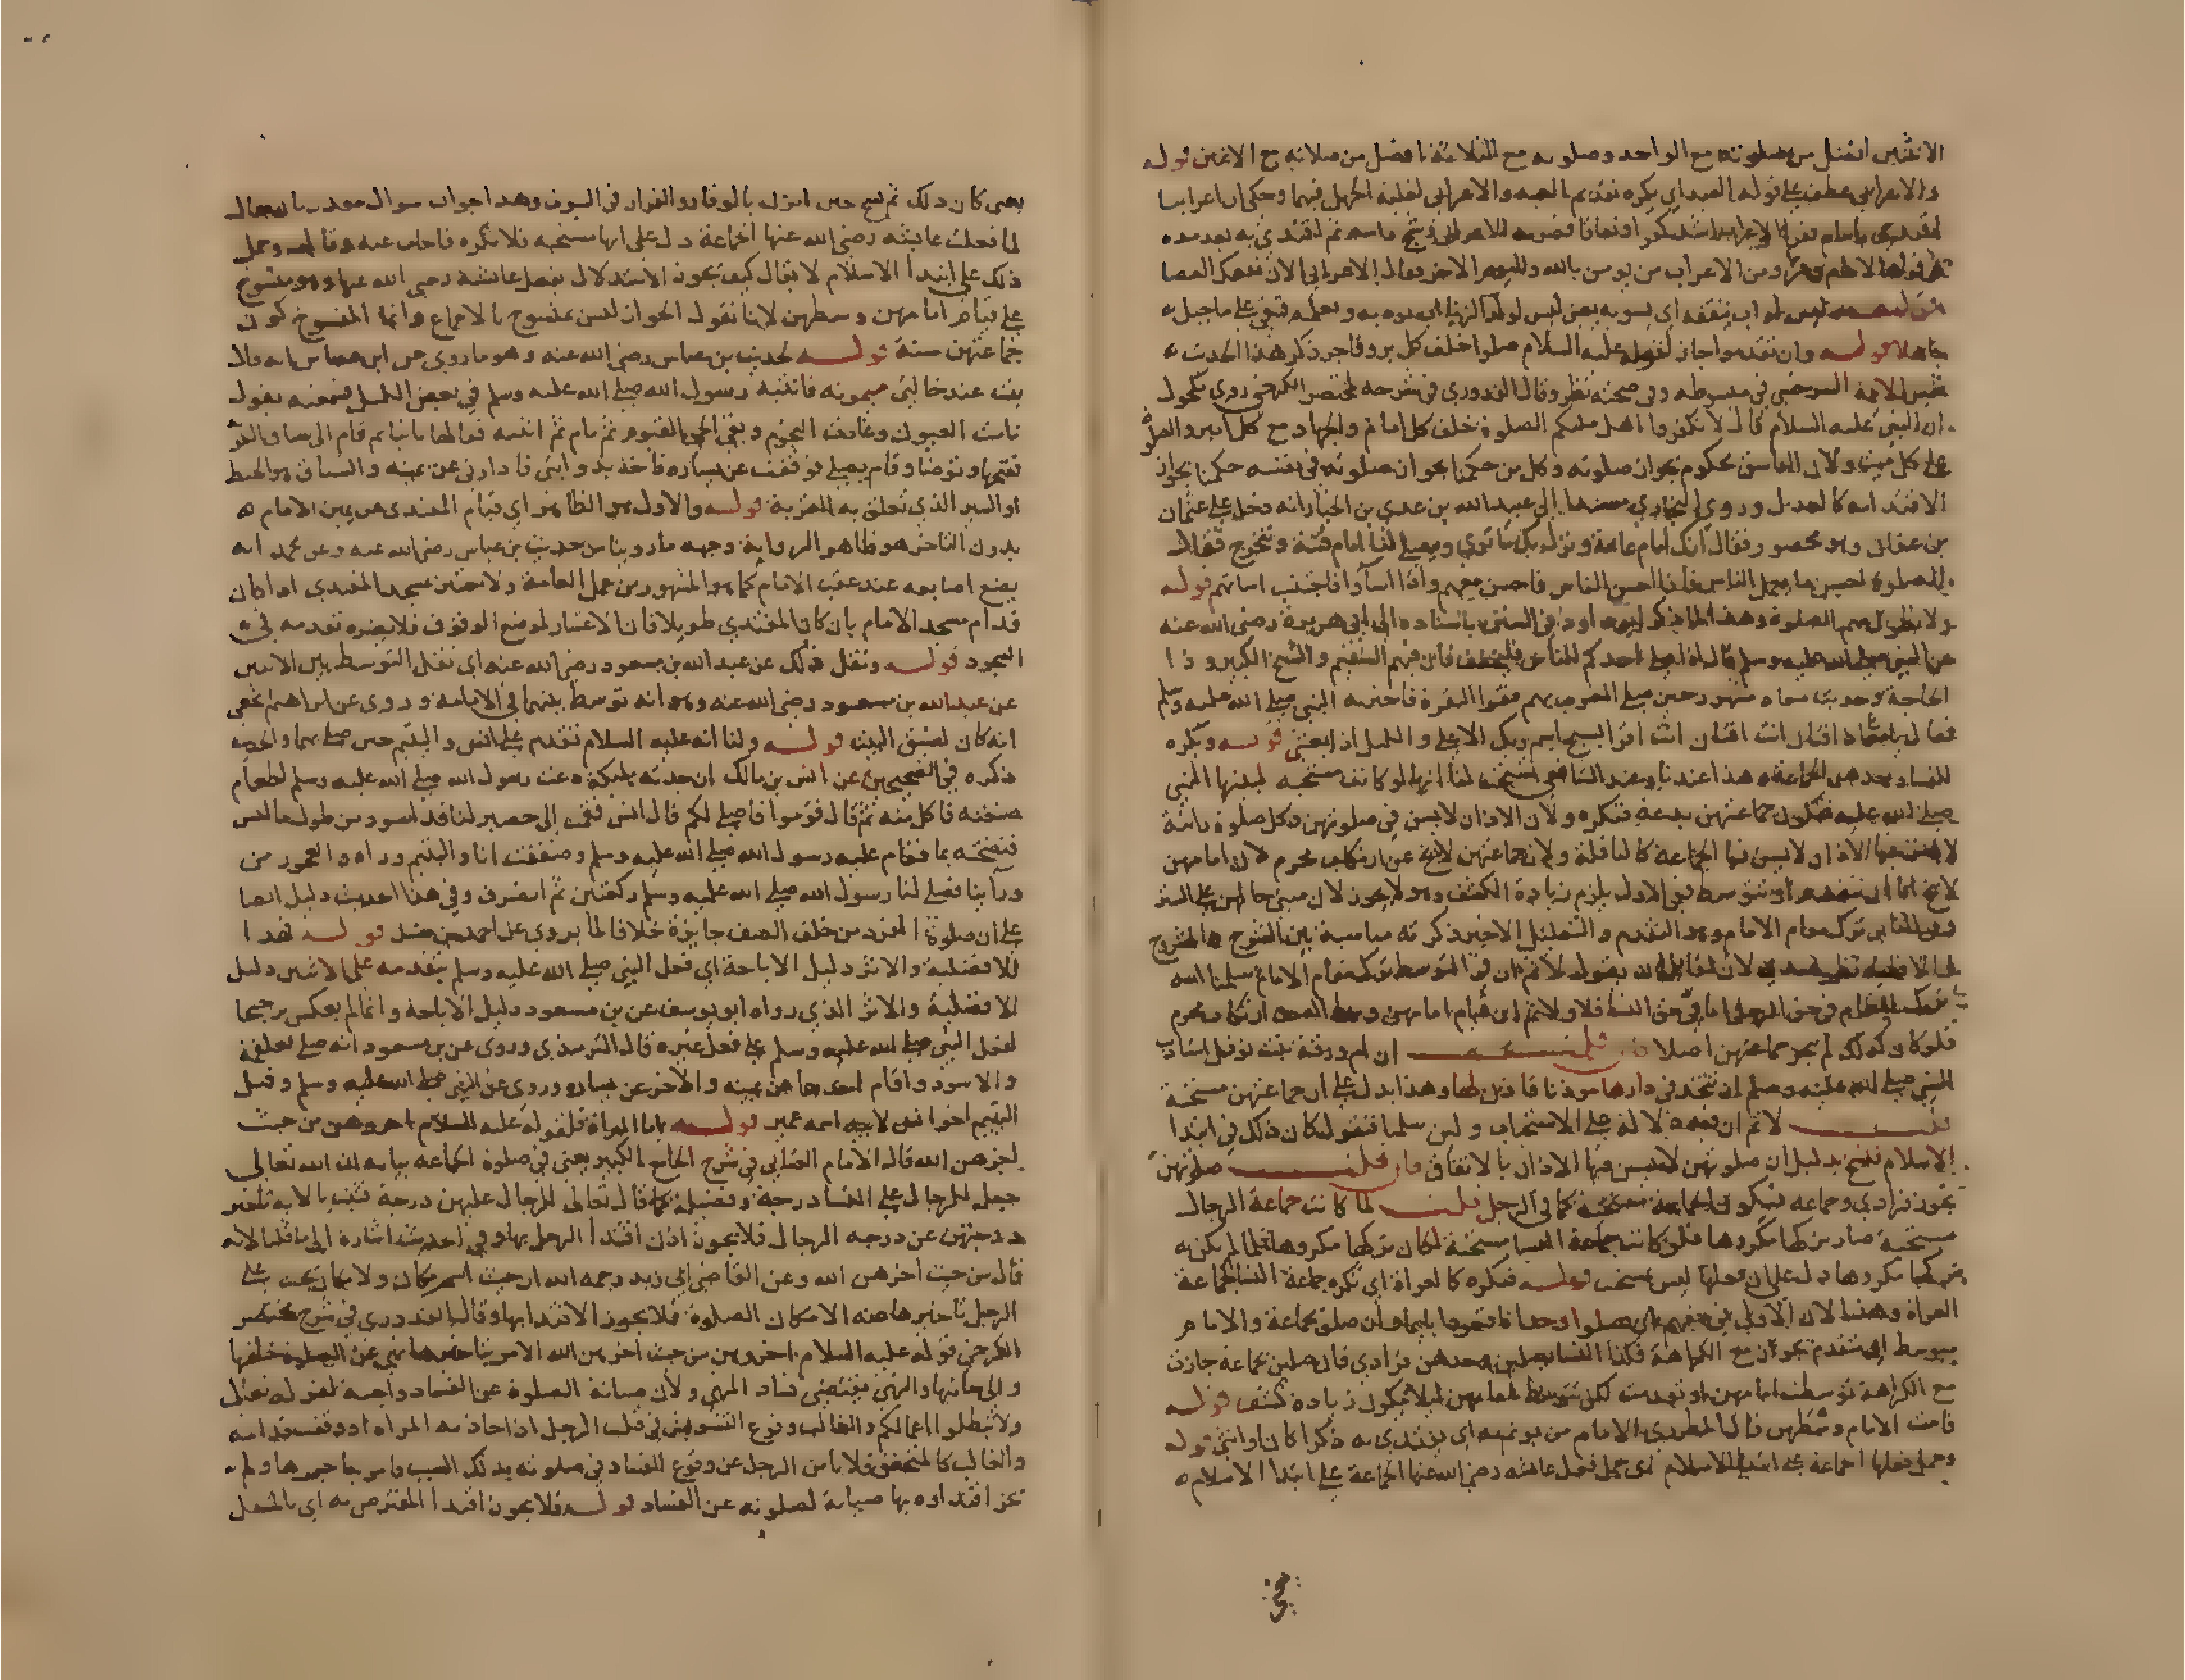 الاثنين افضل من صلوته مع الواحد وصلوته مع الثلاثة افضل من صلاته مع الاثنين قوله
والاعرابي عطف على قوله العبد اي يكره تقديم العبد والاعرابي لغلبة الجهل فيهما وحكي ان اعرابيا
اقتدى بامام فقرا الاعراب اشد كفرا ونفاقا فضربه الاعرابي وشج راسه ثم اقتدى به بعد مدة
الامام ومن الاعراب من يومن بالله واليوم الاخر فقال الاعرابي الان نفعك العصا
قوله ليس له اب يثقفه اي يسويه يعني ليس لولد الزنا اب يودبه ويعلمه فبقي على ما جبل
جاهلا قوله وان تقدموا جاز لقوله عليه السلام صلوا خلف كل بر وفاجر ذكر هذا الحديث
شمس الايمة السرخسي في مبسوطه وفي صحته نظر وقال القدوري في شرحه لمختصر الكرخي روى مكحول
ان النبي عليه السلام قال لا تكفروا اهل ملتكم الصلوة خلف كل امام والجهاد مع كل امير والصلوة
على كل ميت ولان الفاسق محكوم بجواز صلوته وكل من حكمنا بجواز صلوته في نفسه حكمنا بجواز
الاقتداء به كالعدل وروى البخاري مسندا الى عبيد الله بن عدي بن الخيار انه دخل على عثمان
بن عفان وهو محصور فقال انك امام عامة ونزل بك ما ترى ويصلي لنا امام فتنة ونتحرج فقال
الصلوة احسن ما يعمل الناس فاذا احسن الناس فاحسن معهم واذا اسآوا فاجتنب اساتهم قوله
ولا يطول بهم الصلوة وهذا لما ذكر ابو داود في السنن باسناده الى ابي هريرة رضي الله عنه
عن النبي صلى الله عليه وسلم قال اذا صلى احدكم للناس فليخفف فان فيهم السقيم والشيخ الكبير وذا
الحاجة وحديث معاذ مشهور حين صلى المغرب بهم فقرا البقرة فاخبر به النبي صلى الله عليه وسلم
فقال يا معاذ افتان انت افتان انت اقرا بسبح اسم ربك الاعلى والليل اذا يغشى قوله ويكره
للنساء وحدهن الجماعة وهذا عندنا وعند الشافعي تستحب لنا انها لو كانت مستحبة لبينها النبي
صلى الله عليه فتكون جماعتهن بدعة فتكره ولان الاذان لا يسن في صلوتهن وكل صلوة راتبة
لا يسن فيها الاذان لا يسن فيها الجماعة كالنافلة ولان جماعتهن لا تخلو عن ارتكاب محرم لان امامهن
لا تخ اما ان تتقدم او تتوسط ففي الاول يلزم زيادة الكشف وهو لا يجوز لان مبنى حالهن على الستر
وفي الثاني ترك مقام الامام وهو التقدم والتعليل الاخير ذكر ته مناسبة بين الشرح والمشروح
لان لقايل ان يقول لا نم ان في التوسط ترك مقام الامام سلمنا انه
ترك المقام في حق الرجل اما في حق النسا فلا ولا نم ان قيام امامهن وسط الصف ارتكاب محرم
فلو كان كذلك لم يجز جماعتهن اصلا فان قلت ان ام ورقة بنت نوفل استاذنت
النبي صلى الله عليه وسلم ان تتخذ في دارها موذنا فاذن لها وهذا يدل على ان جماعتهن مستحبة
قلت لا نم ان فيه دلالة على الاستحباب ولين سلمنا فنقول كان ذلك في ابتدا
الاسلام فنسخ بدليل ان صلوتهن لا يسن فيها الاذان بالاتفاق فان قلت صلوتهن
تجوز فرادى وجماعة فتكون الجماعة مستحبة كما في الرجل قلت لما كانت جماعة الرجال
مستحبة صار تركها مكروها فلو كانت جماعة النسا مستحبة لكان تركها مكروها فلما لم يكن
تركها مكروها دل على ان فعلها ليس بمستحب قوله فتكره كالعراة اي تكره جماعة النسا كجماعة
العراة وهذا لان الاولى في حقهم ان يصلوا وحدانا قعودا بايما وان صلوا بجماعة والامام
يتوسط او يتقدم يجوز مع الكراهة فكذا النسا يصلين وحدهن فرادى فان صلين بجماعة جازت
مع الكراهة توسطت امامهن او تقدمت لكن تتوسط امامهن ليلا يكون زيادة كشف قوله
قامت الامام وسطهن قال المطرزي الامام من يوتم به اي يقتدى به ذكرا كان او انثى قوله
وحمل فعلها الجماعة على ابتداء الاسلام اي حمل فعل عائشة رضي الله عنها الجماعة على ابتدا الاسلام
يعني كان ذلك ثم نسخ حين امرن بالوقار والقرار في البيوت وهذا جواب سوال مقدر بان يقال
لما فعلت عايشة رضي الله عنها الجماعة دل على انها مستحبة فلا تكره فاجاب عنه وقال وحمل
ذلك على ابتدأ الاسلام لا يقال كيف يجوز الاستدلال بفعل عائشة رضي الله عنها وهو منسوخ
على قيام امامهن وسطهن لانا نقول الجواز ليس بمنسوخ بالاجماع وانما المنسوخ كون
جماعتهن سنة قوله لحديث بن عباس رضي الله عنه وهو ما روي عن ابن عباس انه قال
بت عند خالتي ميمونة فانتبه رسول الله صلى الله عليه وسلم في بعض الليل فسمعته يقول
نامت العيون وغارت النجوم وبقي الحي القيوم ثم نام ثم انتبه فقالها ثانيا ثم قام الى ساق القربة
ففتحها وتوضا وقام يصلي فوقفت عن يساره فاخذ بيدي وادارني عن يمينه والساق هو الخيط
او السير الذي تعلق به القربة قوله والاول هو الظاهر اي قيام المقتدي عن يمين الامام
بدون التاخر هو ظاهر الرواية وجهه ما روينا من حديث بن عباس رضي الله عنه وعن محمد انه
يضع اصابعه عند عقب الامام كما هو المشهور من عمل العامة ولا يعتبر مسجد المقتدي اذا كان
قدام مسجد الامام بان كان المقتدي طويلا فان الاعتبار لموضع الوقوف فلا يضره تقدمه في
السجود قوله ونقل ذلك عن عبد الله بن مسعود رضي الله عنه اي نقل التوسط بين الاثنين
عن عبد الله بن مسعود رضي الله عنه وهو انه توسط بينهما في الامامة وروى عن ابراهيم النخعي
انه كان لضيق البيت قوله ولنا انه عليه السلام تقدم على انس واليتيم حين صلى بهما والحديث
ذكره في الصحيحين عن انس بن مالك ان جدته مليكة دعت رسول الله صلى الله عليه وسلم لطعام
صنعته فاكل منه ثم قال قوموا فاصلي لكم قال انس فقمت الى حصير لنا قد اسود من طول ما لبس
فنضحته بما فقام عليه رسول الله صلى الله عليه وسلم وصففت انا واليتيم وراه والعجوز من
وراينا فصلى لنا رسول الله صلى الله عليه وسلم ركعتين ثم انصرف وفي هذا الحديث دليل ايضا
على ان صلوة المنفرد من خلف الصف جايزة خلافا لما يروى عن احمد بن حنبل قوله فهذا
للافضلية والاثر دليل الاباحة اي فعل النبي صلى الله عليه وسلم بتقدمه على الاثنين دليل
الافضلية والاثر الذي رواه ابو يوسف عن بن مسعود دليل الاباحة وانما لم يعكس ترجيحا
لفعل النبي صلى الله عليه وسلم على فعل غيره قال الترمذي وروى عن بن مسعود انه صلى بعلقمة
والاسود واقام احدهما عن يمينه والاخر عن يساره وروى عن النبي صلى الله عليه وسلم وقيل
اليتيم اخو انس لابيه اسمه عمير قوله اما المراة فلقوله عليه السلام اخروهن من حيث
اخرهن الله قال الامام العتابي في شرح الجامع الكبير يعني في صلوة الجماعة بيانه ان الله تعالى
جعل للرجال على النسا درجة وفضيلة كما قال تعالى للرجال عليهن درجة فثبت بالاية تاخير
درجتهن عن درجة الرجال فلا يجوز اذن اقتدأ الرجل بها وفي الحديث اشارة الى ما قلنا لانه
قال من حيث اخرهن الله وعن القاضي ابي زيد رحمه الله ان حيث اسم مكان ولا مكان يجب على
الرجل تاخيرها عنه الا مكان الصلوة فلا يجوز الاقتدا بها وقال القدوري في شرح مختصر
الكرخي قوله عليه السلام اخروهن من حيث اخرهن الله الامر بتاخيرها نهي عن الصلوة خلفها
والى جانبها والنهي يقتضي فساد المنهي ولان صيانة الصلوة عن الفساد واجبة لقوله تعالى
ولا تبطلوا اعمالكم والغالب وقوع التشويش في قلب الرجل اذا حاذته المراة او وقفت قدامه
والغالب كالمتحقق فلا يامن الرجل عن وقوع الفساد في صلوته بذلك السبب فامر بتاخيرها ولم
يجز اقتداوه بها صيانة لصلوته عن الفساد قوله فلا يجوز اقتدا المفترض به اي بالمتنفل